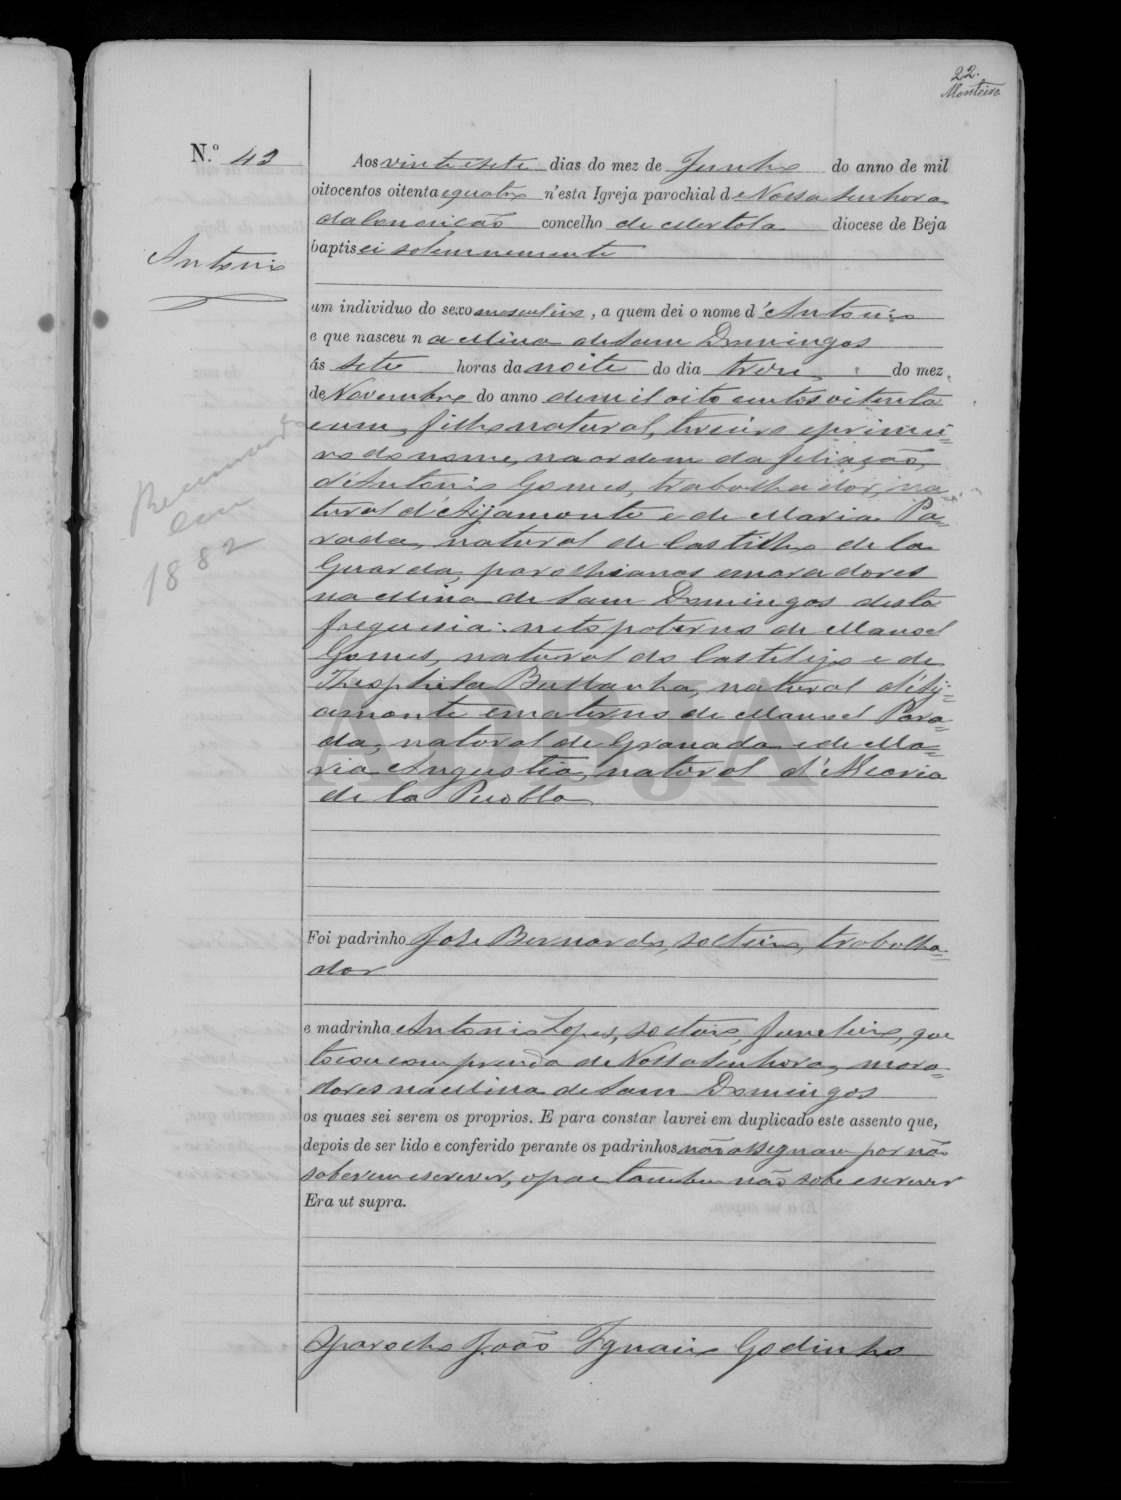 22.
Monteiro
N.º 43
Aos vinte sete dias do mez de Junho do anno de mil
oitocentos oitenta e quatro n'esta Igreja parochial de Nossa Senhora
da Conceição concelho de Mertola diocese de Beja
baptisei solemnemente
Antonio
um individuo do sexo masculino, a quem dei o nome d'Antonio
e que nasceu na Mina de Sam Domingos
ás sete horas da noite do dia treze do mez
de Novembro do anno de mil oito centos oitenta
e um, filho natural, terceiro e primei=
ro do nome, na ordem da filiação,
d'Antonio Gomes, trabalhador, na=
tural d'Ayamonte e de Maria Pa=
rada, natural de Castilho de la
Guarda, parochianos e moradores
na Mina de Sam Domingos desta
freguesia: neto paterno de Manoel
Gomes, natural do Castilejo e de
Theophila, natural d'Ay=
amonte e materno de Manoel Para=
da, natural de Granada e de Ma=
ria Angustia, natural d'Alcaria
de la Puebla
1882
ABBJA
Foi padrinho José Bernardo, solteiro, trabalha=
dor
e madrinha Antonio Lopes, solteiro, funileiro, que
tocou com prenda de Nossa Senhora, mora=
dores na Mina de Sam Domingos
os quaes sei serem os proprios. E para constar lavrei em duplicado este assento que,
depois de ser lido e conferido perante os padrinhos não assignam por não
saberem escrever, o pae tambem não sabe escrever
Era ut supra.
O parocho João Ignacio Godinho